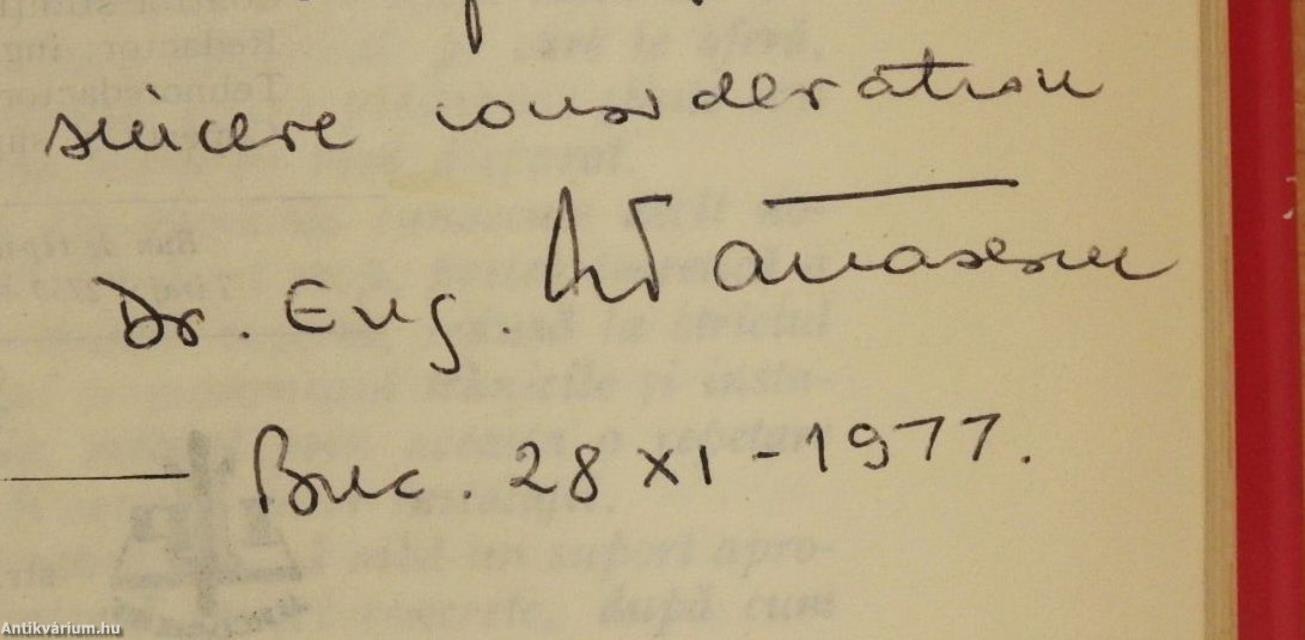 sincere consideration
Dr. Eug. Atanasescu
Buc. 28 XI - 1977.
Antikvárium.hu